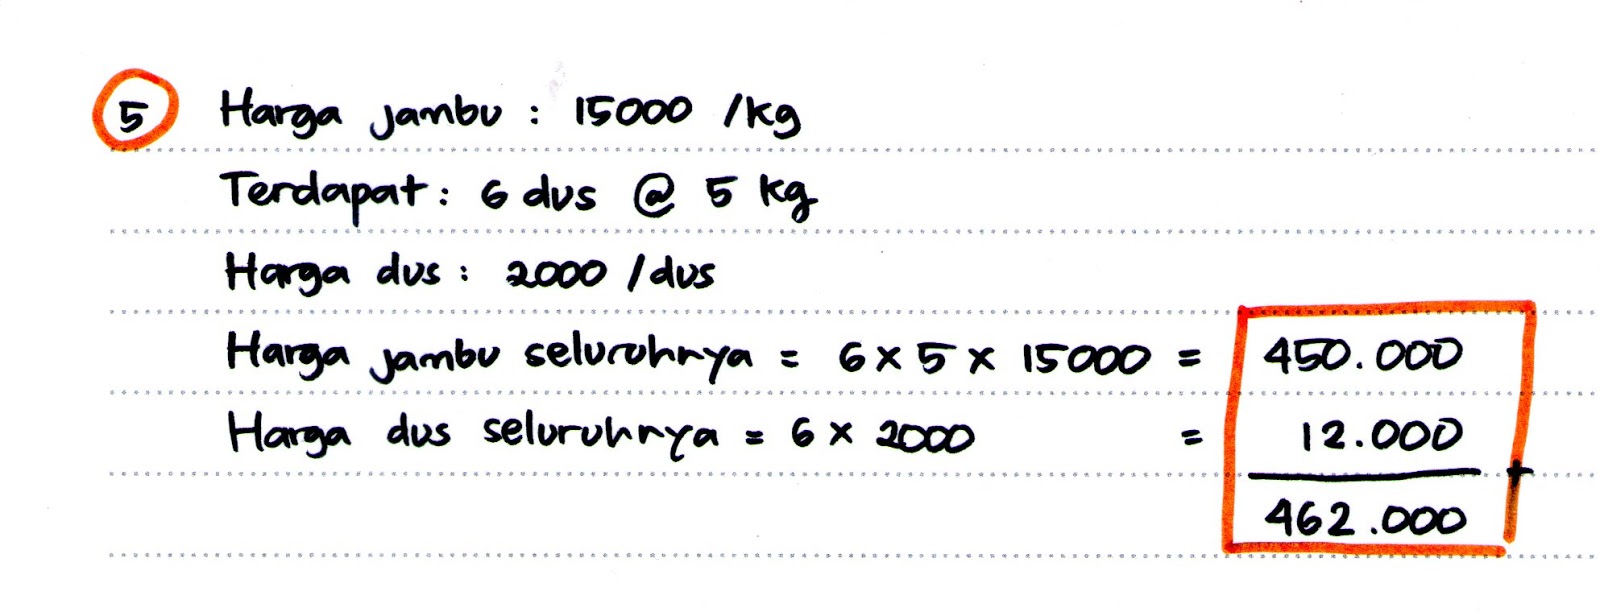 5 Harga jambu : 15000 /kg
Terdapat : 6 dus @ 5 kg
Harga dus : 2000 /dus
Harga jambu seluruhnya = 6 x 5 x 15000 = 450.000
Harga dus seluruhnya = 6 x 2000 = 12.000
+
462.000